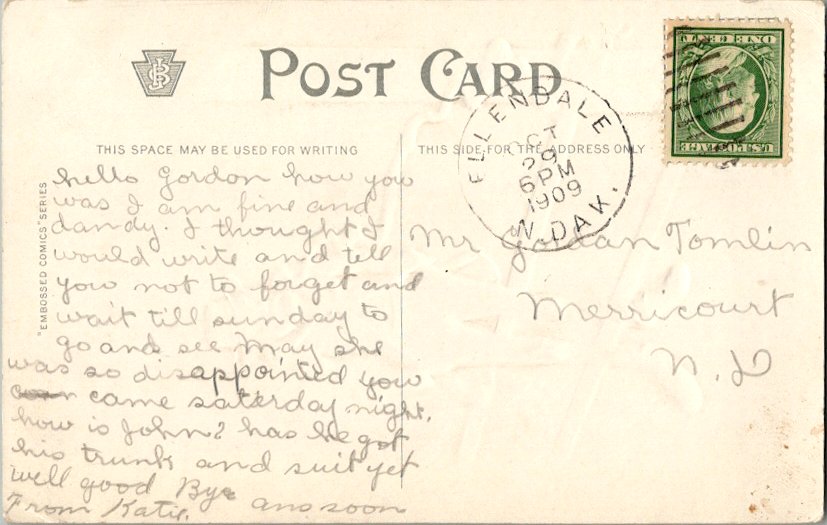 POST CARD
THIS SPACE MAY BE USED FOR WRITING
THIS SIDE FOR THE ADDRESS ONLY
"EMBOSSED COMICS" SERIES
ELLENDALE
OCT
29
6PM
1909
N. DAK.
U.S. POSTAGE
ONE CENT
hello Gordon how you
was I am fine and
dandy. I thought I
would write and tell
you not to forget and
wait till sunday to
go and see May she
was so disappointed you
came saterday night.
how is John? has he got
his trunk and suit yet
well good Bye ans soon
From Katie.
Mr Gordan Tomlin
Merricourt
N. D